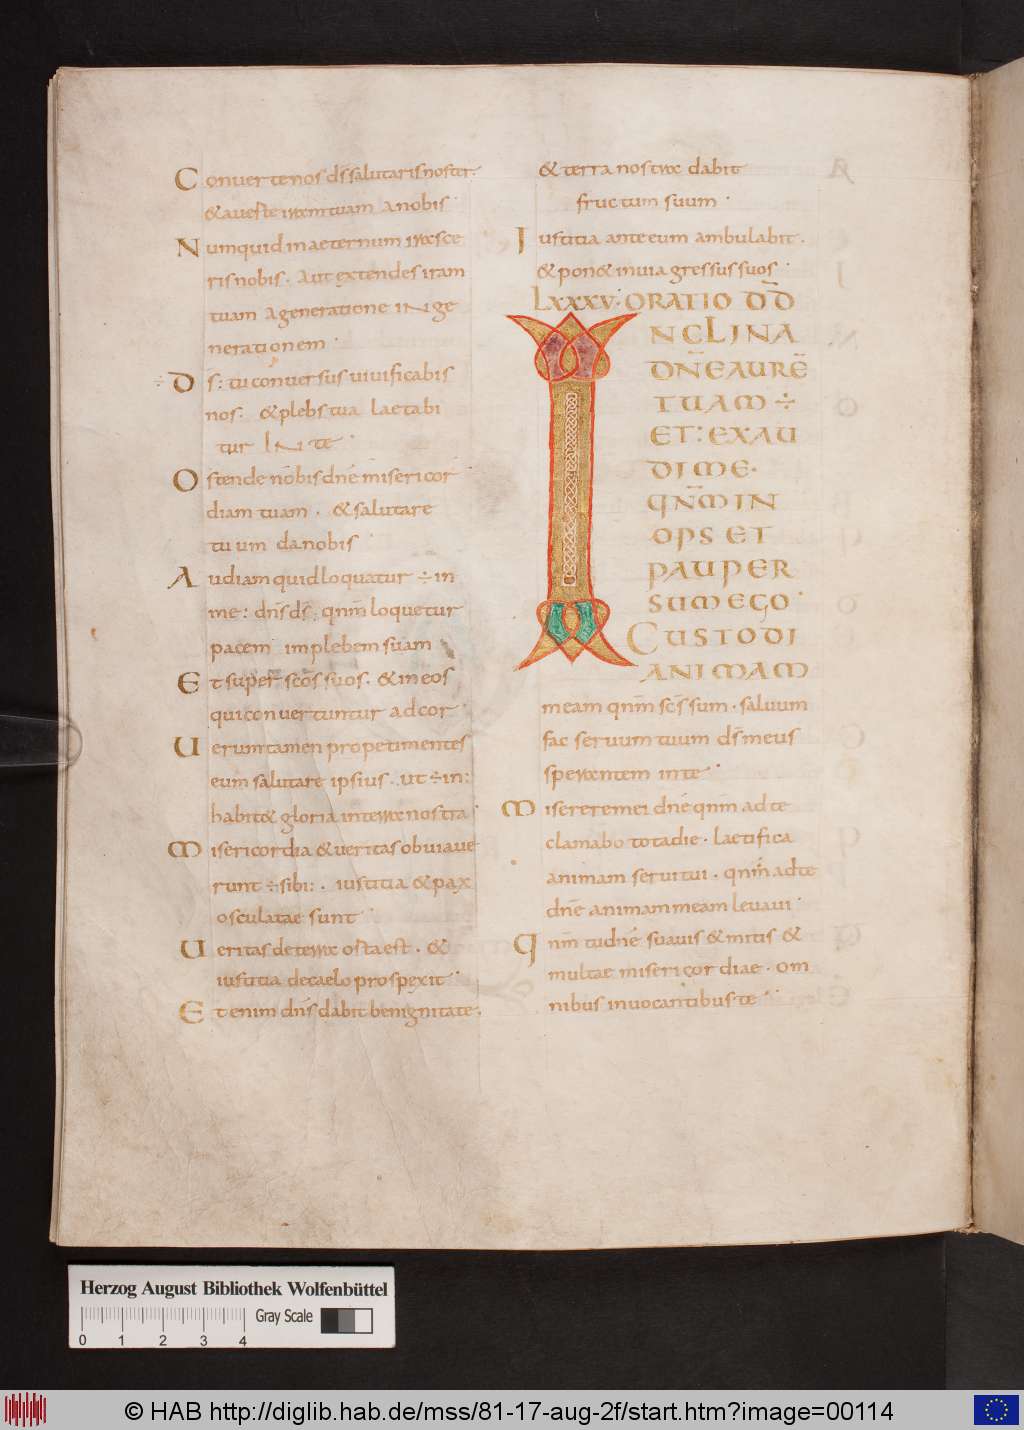 Conuerte nos d̄s salutaris noster.
& auerte iram tuam a nobis
Numquid in aeternum irasce
ris nobis. Aut extendes iram
tuam a generatione in ge
nerationem
÷ D̄s: tu conuersus uiuificabis
nos. & plebs tua laetabi
tur IN te
Ostende nobis dn̄e misericor
diam tuam. & salutare
tuum da nobis
Audiam quid loquatur ÷ in
me: dn̄s d̄s; qn̄m loquetur
pacem in plebem suam
Et super sc̄os suos. & in eos
qui conuertuntur ad cor
Uerumtamen prope timentes
eum salutare ipsius. ut ÷ in:
habit& gloria in terra nostra
Misericordia & ueritas obuiaue
runt ÷ sibi:. iustitia & pax
osculatae sunt
Ueritas de terra orta est. &
iustitia de caelo prospexit
Etenim dn̄s dabit benignitatem
& terra nostra dabit
fructum suum
Iustitia ante eum ambulabit.
& pon& in uia gressus suos
LXXXV. ORATIO D̄D
INCLINA
DN̄E AURĒ
TUAM ÷
ET: EXAU
DI ME.
QN̄M IN
OPS ET
PAUPER
SUM EGO
CUSTODI
ANIMAM
meam qn̄m sc̄s sum. saluum
fac seruum tuum d̄s meus
sperantem in te
Miserere mei dn̄e qn̄m ad te
clamabo tota die. laetifica
animam serui tui. qn̄m ad te
dn̄e animam meam leuaui
Qn̄m tu dn̄e suauis & mitis &
multae misericordiae. om
nibus inuocantibus te
Herzog August Bibliothek Wolfenbüttel
Gray Scale
0 1 2 3 4
© HAB http://diglib.hab.de/mss/81-17-aug-2f/start.htm?image=00114